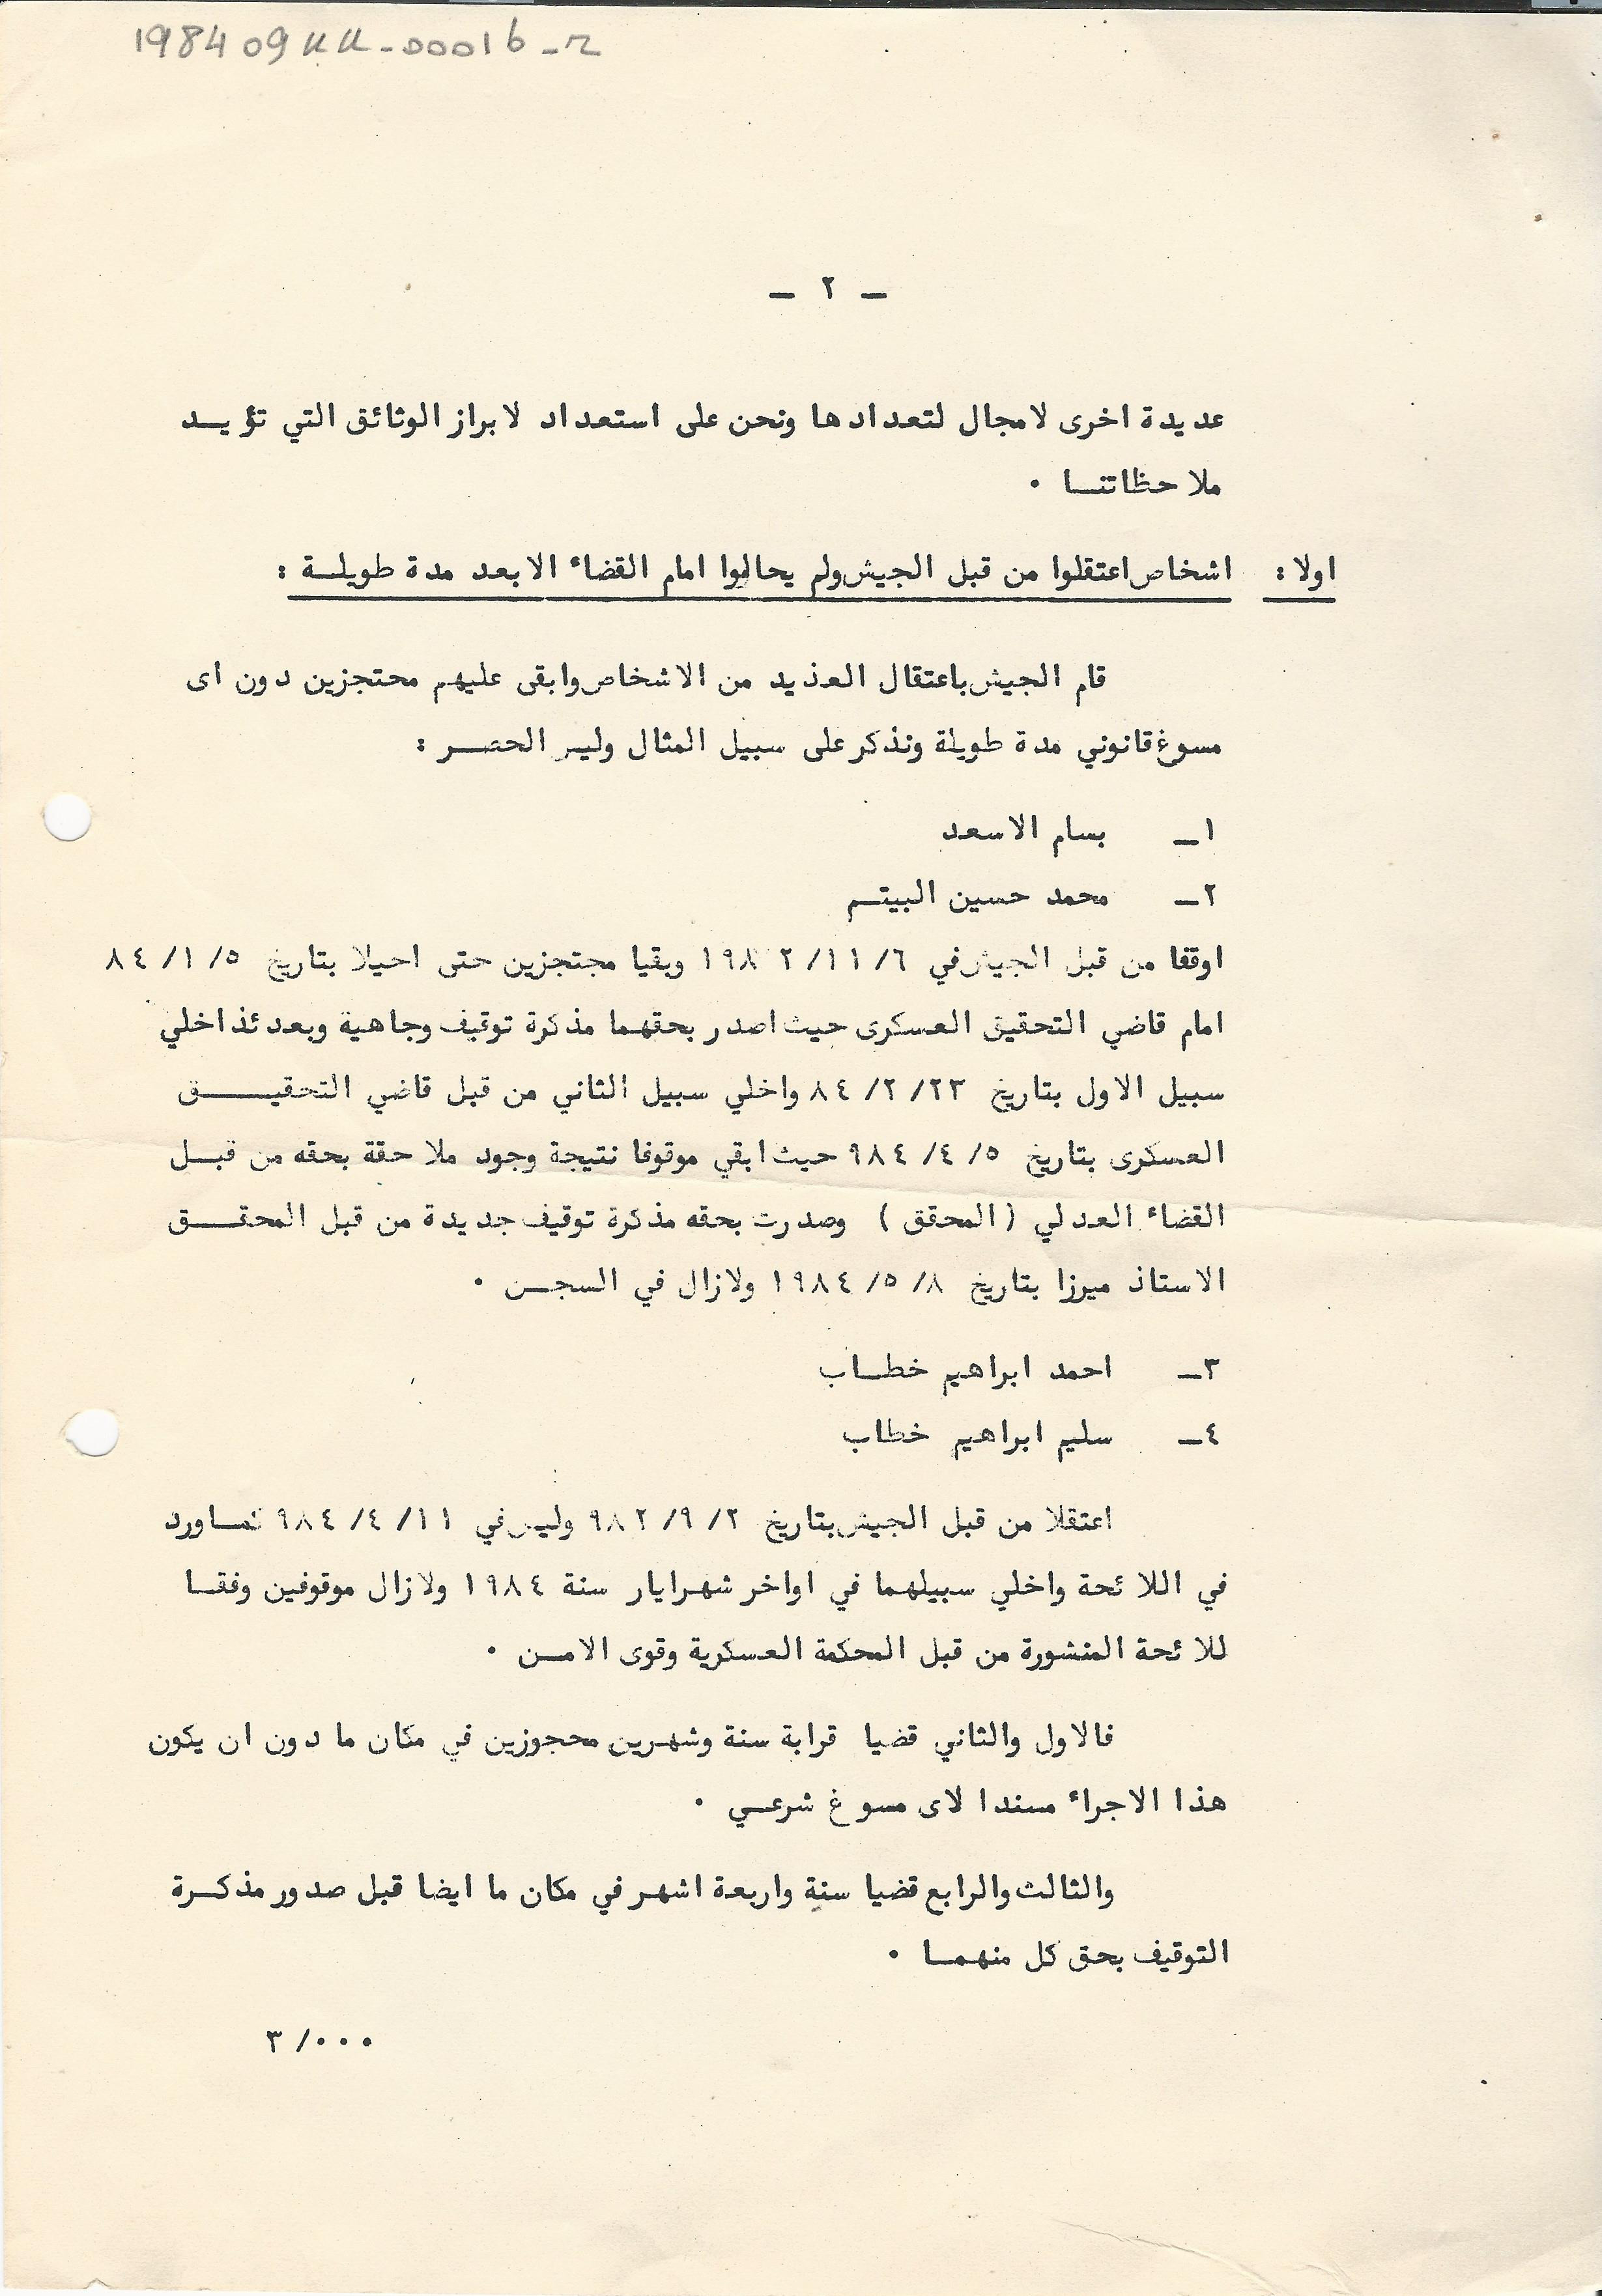 198409UU-00016-2
- ٢ -
عديدة اخرى لامجال لتعدادها ونحن على استعداد لابراز الوثائق التي تؤيـــد
ملاحظاتنـــا ٠
اولا : اشخاص اعتقلوا من قبل الجيش ولم يحالوا امام القضاء الا بعد مدة طويلـــة :
قام الجيش باعتقال العذيد من الاشخاص وابقى عليهم محتجزين دون اى
مسوغ قانوني مدة طويلة ونذكر على سبيل المثال وليس الحصـــر :
١ـ بسام الاسعد
٢ـ محمد حسين البيتـــم
اوقفا من قبل الجيش في ٦/ ١١/ ١٩٨٢ وبقيا مجتجزين حتى احيلا بتاريخ ٥/ ١/ ٨٤
امام قاضي التحقيق العسكرى حيث اصدر بحقهما مذكرة توقيف وجاهية وبعدئذ اخلي
سبيل الاول بتاريخ ٢٣/ ٢/ ٨٤ واخلي سبيل الثاني من قبل قاضي التحقيـــــق
العسكرى بتاريخ ٥/ ٤/ ٩٨٤ حيث ابقي موقوفا نتيجة وجود ملاحقة بحقه من قبـــل
القضاء العدلي (المحقق) وصدرت بحقه مذكرة توقيف جديدة من قبل المحقـــق
الاستاذ ميرزا بتاريخ ٨/ ٥/ ١٩٨٤ ولازال في السجـــن ٠
٣ـ احمد ابراهيم خطـــاب
٤ـ سليم ابراهيم خطاب
اعتقلا من قبل الجيش بتاريخ ٢/ ٩/ ٩٨٢ وليس في ١١/ ٤/ ٩٨٤ كمـــا ورد
في اللائحة واخلي سبيلهما في اواخر شهر ايار سنة ١٩٨٤ ولازال موقوفين وفقـــا
للائحة المنشورة من قبل المحكمة العسكرية وقوى الامـــن ٠
فالاول والثاني قضيا قرابة سنة وشهرين محجوزين في مكان ما دون ان يكون
هذا الاجراء مسندا لاى مسوغ شرعـــي ٠
والثالث والرابع قضيا سنة واربعة اشهر في مكان ما ايضا قبل صدور مذكـــرة
التوقيف بحق كل منهمـــا ٠
٠٠٠/ ٣